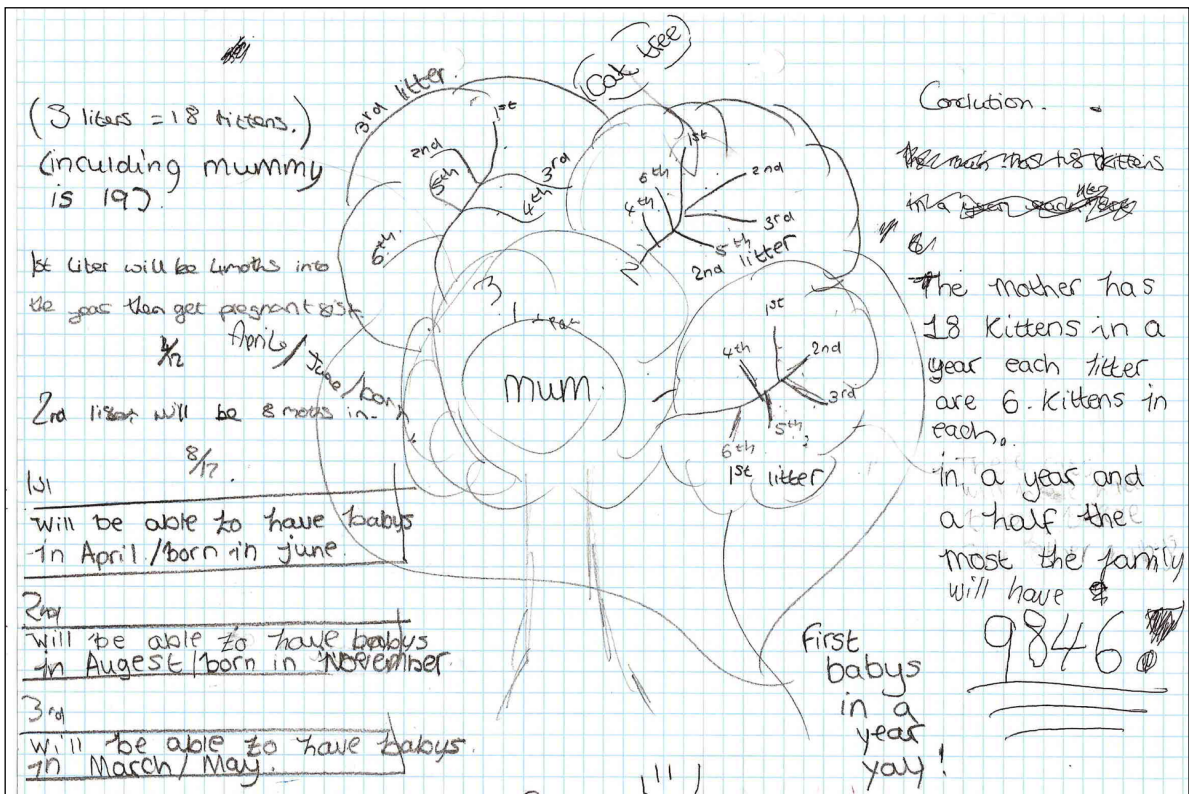 (3 liters = 18 kittens.)
(inculding mummy
is 19)
1st liter will be 4moths into
the year then get pregnant
4/12
Aprile/June/born
2nd will be 8 moths in.
8/12.
1st
will be able to have babys
in April./born in june.
2nd
will be able to have babys
in Augest/born in November.
3rd
will be able to have babys.
in March/May.
(Cat tree)
3rd litter.
1st
2nd
3rd
4th
5th
6th.
1st
2nd
3rd
4th
5th
6th
2nd litter
2
3
mum
1st
2nd
3rd
4th
5th
6th
1st litter
First
babys
in a
year
yay!
Conclution.
The mother has
18 kittens in a
year each litter
are 6. kittens in
each.
in a year and
a half the
most the family
will have
9846.